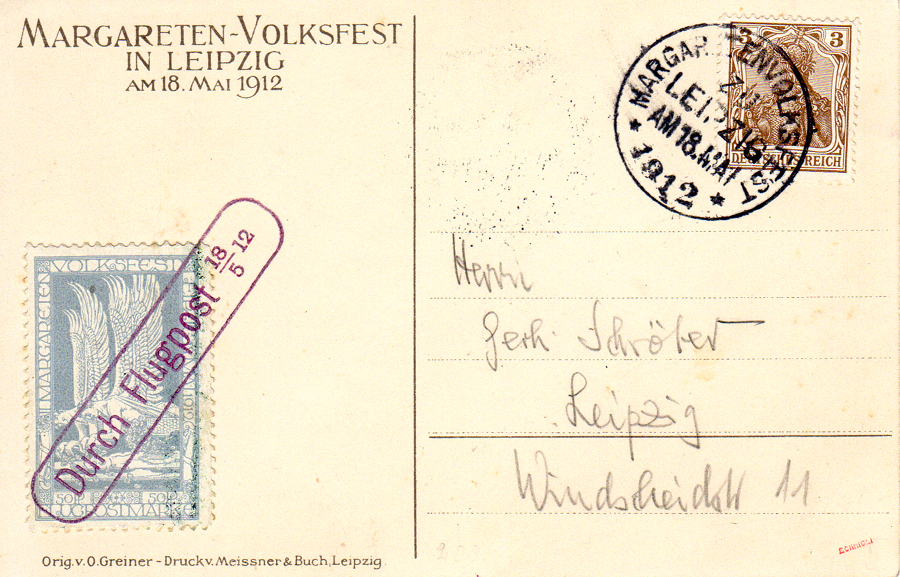 MARGARETEN-VOLKSFEST
IN LEIPZIG
AM 18. MAI 1912
MARGARETENVOLKSFEST
ZU
LEIPZIG
AM 18. MAI
* 1912 *
3 3
DEUTSCHES REICH
VOLKSFEST
MARGARETEN
1912
50 P. 50 P.
FLUGPOSTMARKE
Durch Flugpost 18/5 12
Herrn
Gerh. Schröter
Leipzig
Windscheidstr 11
Orig. v. O. Greiner - Druck v. Meissner & Buch, Leipzig.